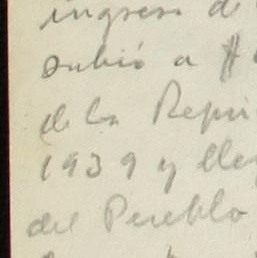 ingreso d
subió a #
de la Repú
1939 y lle
del Pueblo